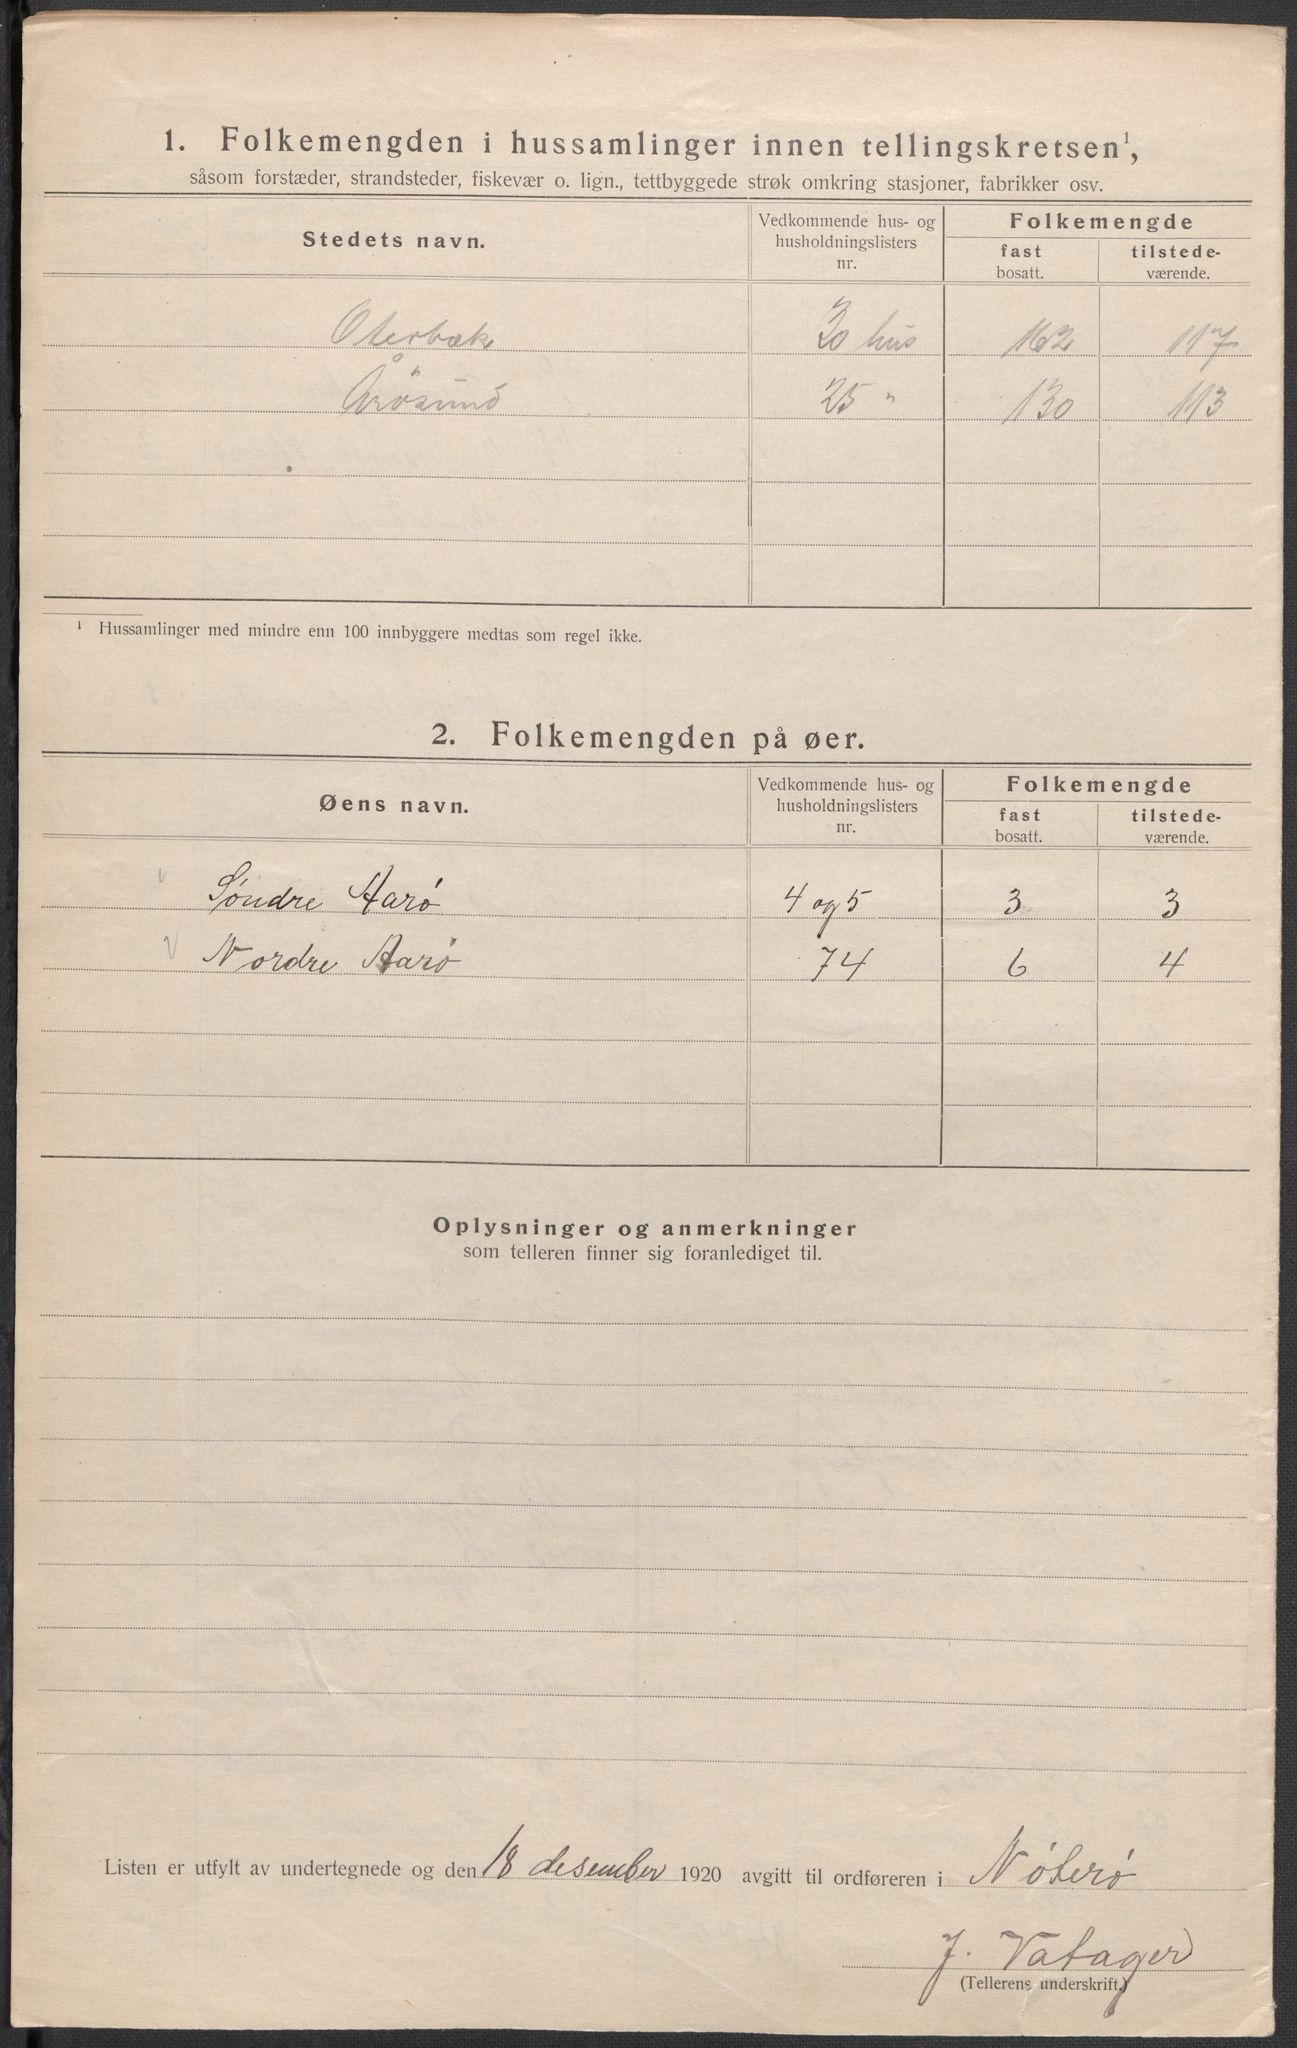 1. Folkemengden i hussamlinger innen tellingskretsen¹,
såsom forstæder, strandsteder, fiskevær o. lign., tettbyggede strøk omkring stasjoner, fabrikker osv.
Stedets navn. Vedkommende hus- og husholdningslisters nr. Folkemengde
fast bosatt. tilstedeværende.
Oterbæk 30 hus 162 117
Årøsund 25 " 130 113
¹ Hussamlinger med mindre enn 100 innbyggere medtas som regel ikke.
2. Folkemengden på øer.
Øens navn. Vedkommende hus- og husholdningslisters nr. Folkemengde
fast bosatt. tilstedeværende.
Søndre Aarø 4 og 5 3 3
Nordre Aarø 74 6 4
Oplysninger og anmerkninger
som telleren finner sig foranlediget til.
Listen er utfylt av undertegnede og den 18 desember 1920 avgitt til ordføreren i Nøterø
J. Vatager
(Tellerens underskrift.)